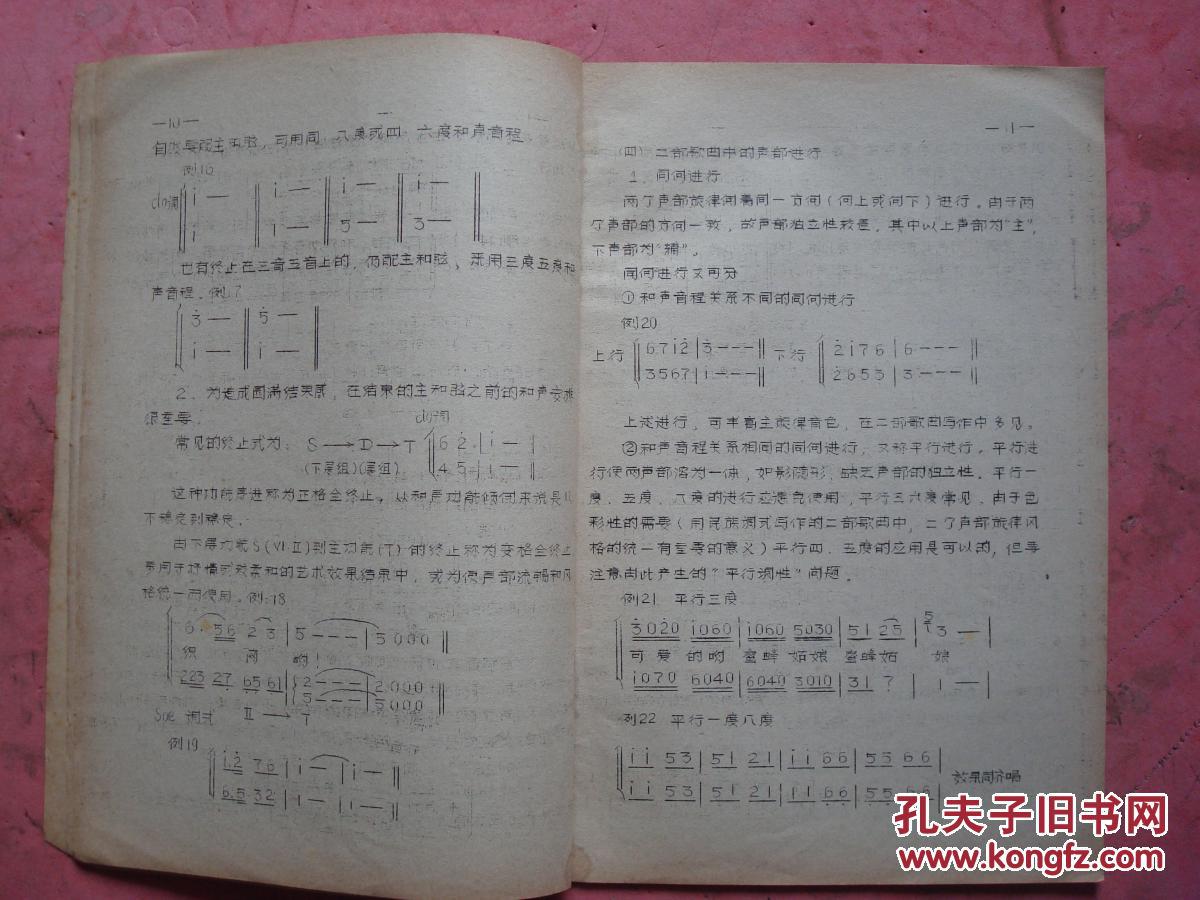 —10—
可用同、八度或四、六度和声音程
例16
do调
i | i — | i — | i — ‖
i | i — | 5 — | 3 — ‖
也有终止在三音五音上的,仍配主和弦,采用三度五度和
声音程。例17
3 — ‖ 5 — ‖
i — ‖ i — ‖
2、为造成圆满结束感,在结束的主和弦之前的和声安排
很重要。
do调
常见的终止式为: S → D → T 6 2 | i — ‖
(下属组)(属组) 4 5 | 1 — ‖
这种功能序进称为正格全终止。从和声功能倾向来说是从
不稳定到稳定。
由下属功能S(VI·II)到主功能(T)的终止称为变格全终止
多用于抒情或效柔和的艺术效果结束中,或为使声部流畅和风
格统一而使用。例18
6· 56 2 3 | 5 - - - | 5 0 0 0 ‖
织 网 哟!
223 27 65 61 | 2 - - - | 2 0 0 0 ‖
5 - - - | 5 0 0 0
Sol 调式 II → T
例19
i·2 76 | i — | i — ‖
6·5 32 | 1 — | 1 — ‖
—11—
(四)二部歌曲中的声部进行
1、同向进行
两个声部旋律向着同一方向(向上或向下)进行。由于两
个声部的方向一致,故声部独立性较差,其中以上声部为“主”,
下声部为“辅”。
同向进行又可分
①和声音程关系不同的同向进行
例20
上行 6 7 i 2 | 3 - - - ‖ 下行 2 i 7 6 | 6 - - - ‖
3 5 6 7 | 1 - - - ‖ 2 6 5 3 | 3 - - - ‖
上述进行,可丰富主旋律音色,在二部歌曲写作中多见。
②和声音程关系相同的同向进行,又称平行进行。平行进
行使两声部溶为一体,如影随形,缺乏声部的独立性。平行一
度、五度、八度的进行应避免使用,平行三六度常见。由于色
彩性的需要(用民族调式写作的二部歌曲中,二个声部旋律风
格的统一有重要的意义)平行四、五度的应用是可以的,但要
注意由此产生的“平行调性”问题。
例21 平行三度
3020 i060 | i060 5030 | 51 25 | 3 — |
可爱 的哟 蜜蜂 姑娘 蜜蜂姑 娘
i070 6040 | 6040 3010 | 31 7 | 1 — |
例22 平行一度八度
i i 5 3 | 5 1 2 1 | i i 6 6 | 5 5 6 6 |
i i 5 3 | 5 1 2 1 | 1 1 6 6 | 5 5 6 6 |
效果同齐唱
孔夫子旧书网
www.kongfz.com